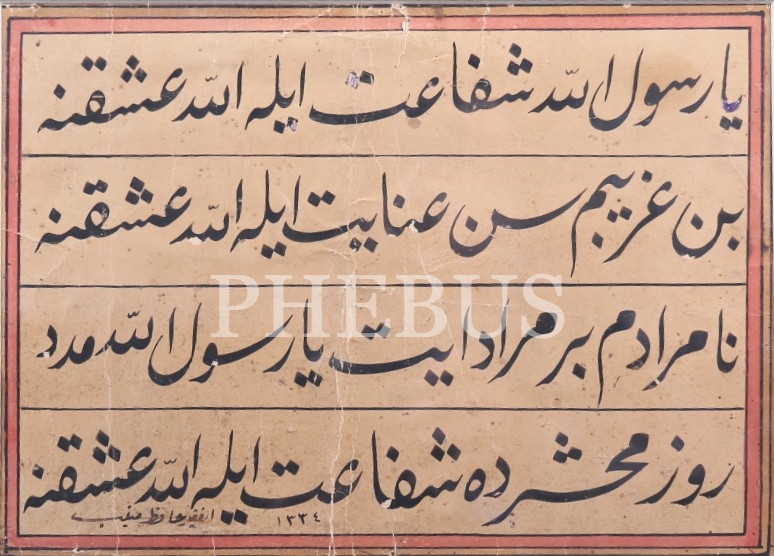 يا رسول الله شفاعت ايله الله عشقنه
بن غريبم سن عنايت ايله الله عشقنه
PHEBUS
نا مرادم بر مراد ايت يا رسول الله مدد
روز محشرده شفاعت ايله الله عشقنه
الفقير حافظ
١٣٣٤